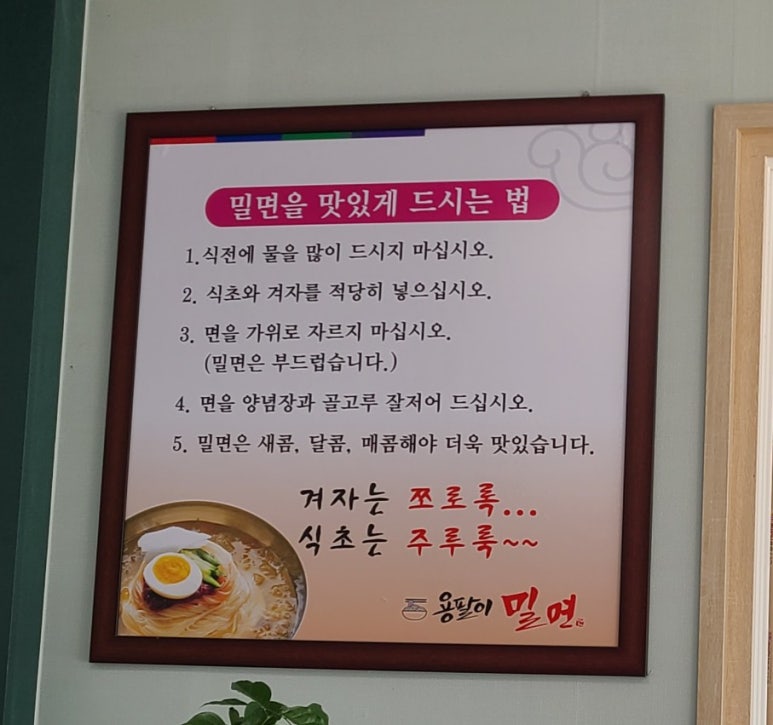 밀면을 맛있게 드시는 법
1. 식전에 물을 많이 드시지 마십시오.
2. 식초와 겨자를 적당히 넣으십시오.
3. 면을 가위로 자르지 마십시오.
(밀면은 부드럽습니다.)
4. 면을 양념장과 골고루 잘저어 드십시오.
5. 밀면은 새콤, 달콤, 매콤해야 더욱 맛있습니다.
겨자는 쪼로록...
식초는 주루룩~~
용팔이 밀면